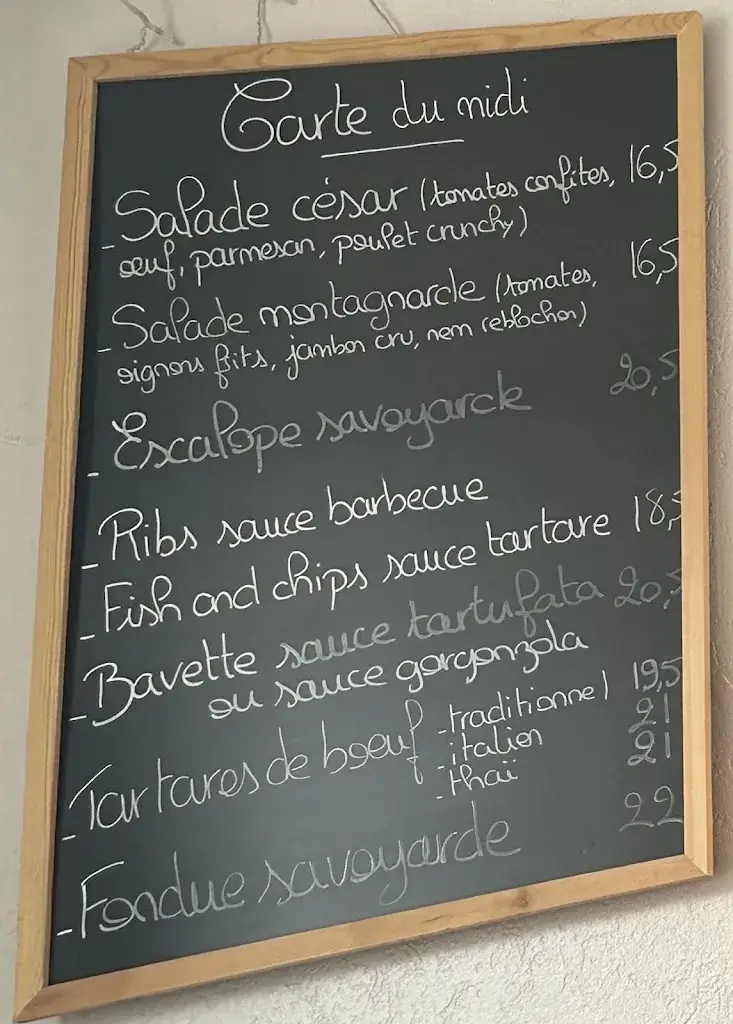 Carte du midi
- Salade césar (tomates confites, 16,5
oeuf, parmesan, poulet crunchy)
- Salade montagnarde (tomates, 16,5
oignons frits, jambon cru, nem reblochon)
- Escalope savoyarde 20,5
- Ribs sauce barbecue
- Fish and chips sauce tartare 18,5
- Bavette sauce tartufata 20,5
ou sauce gorgonzola
- Tartares de boeuf - traditionnel 19,5
- italien 21
- thaï 21
- Fondue savoyarde 22